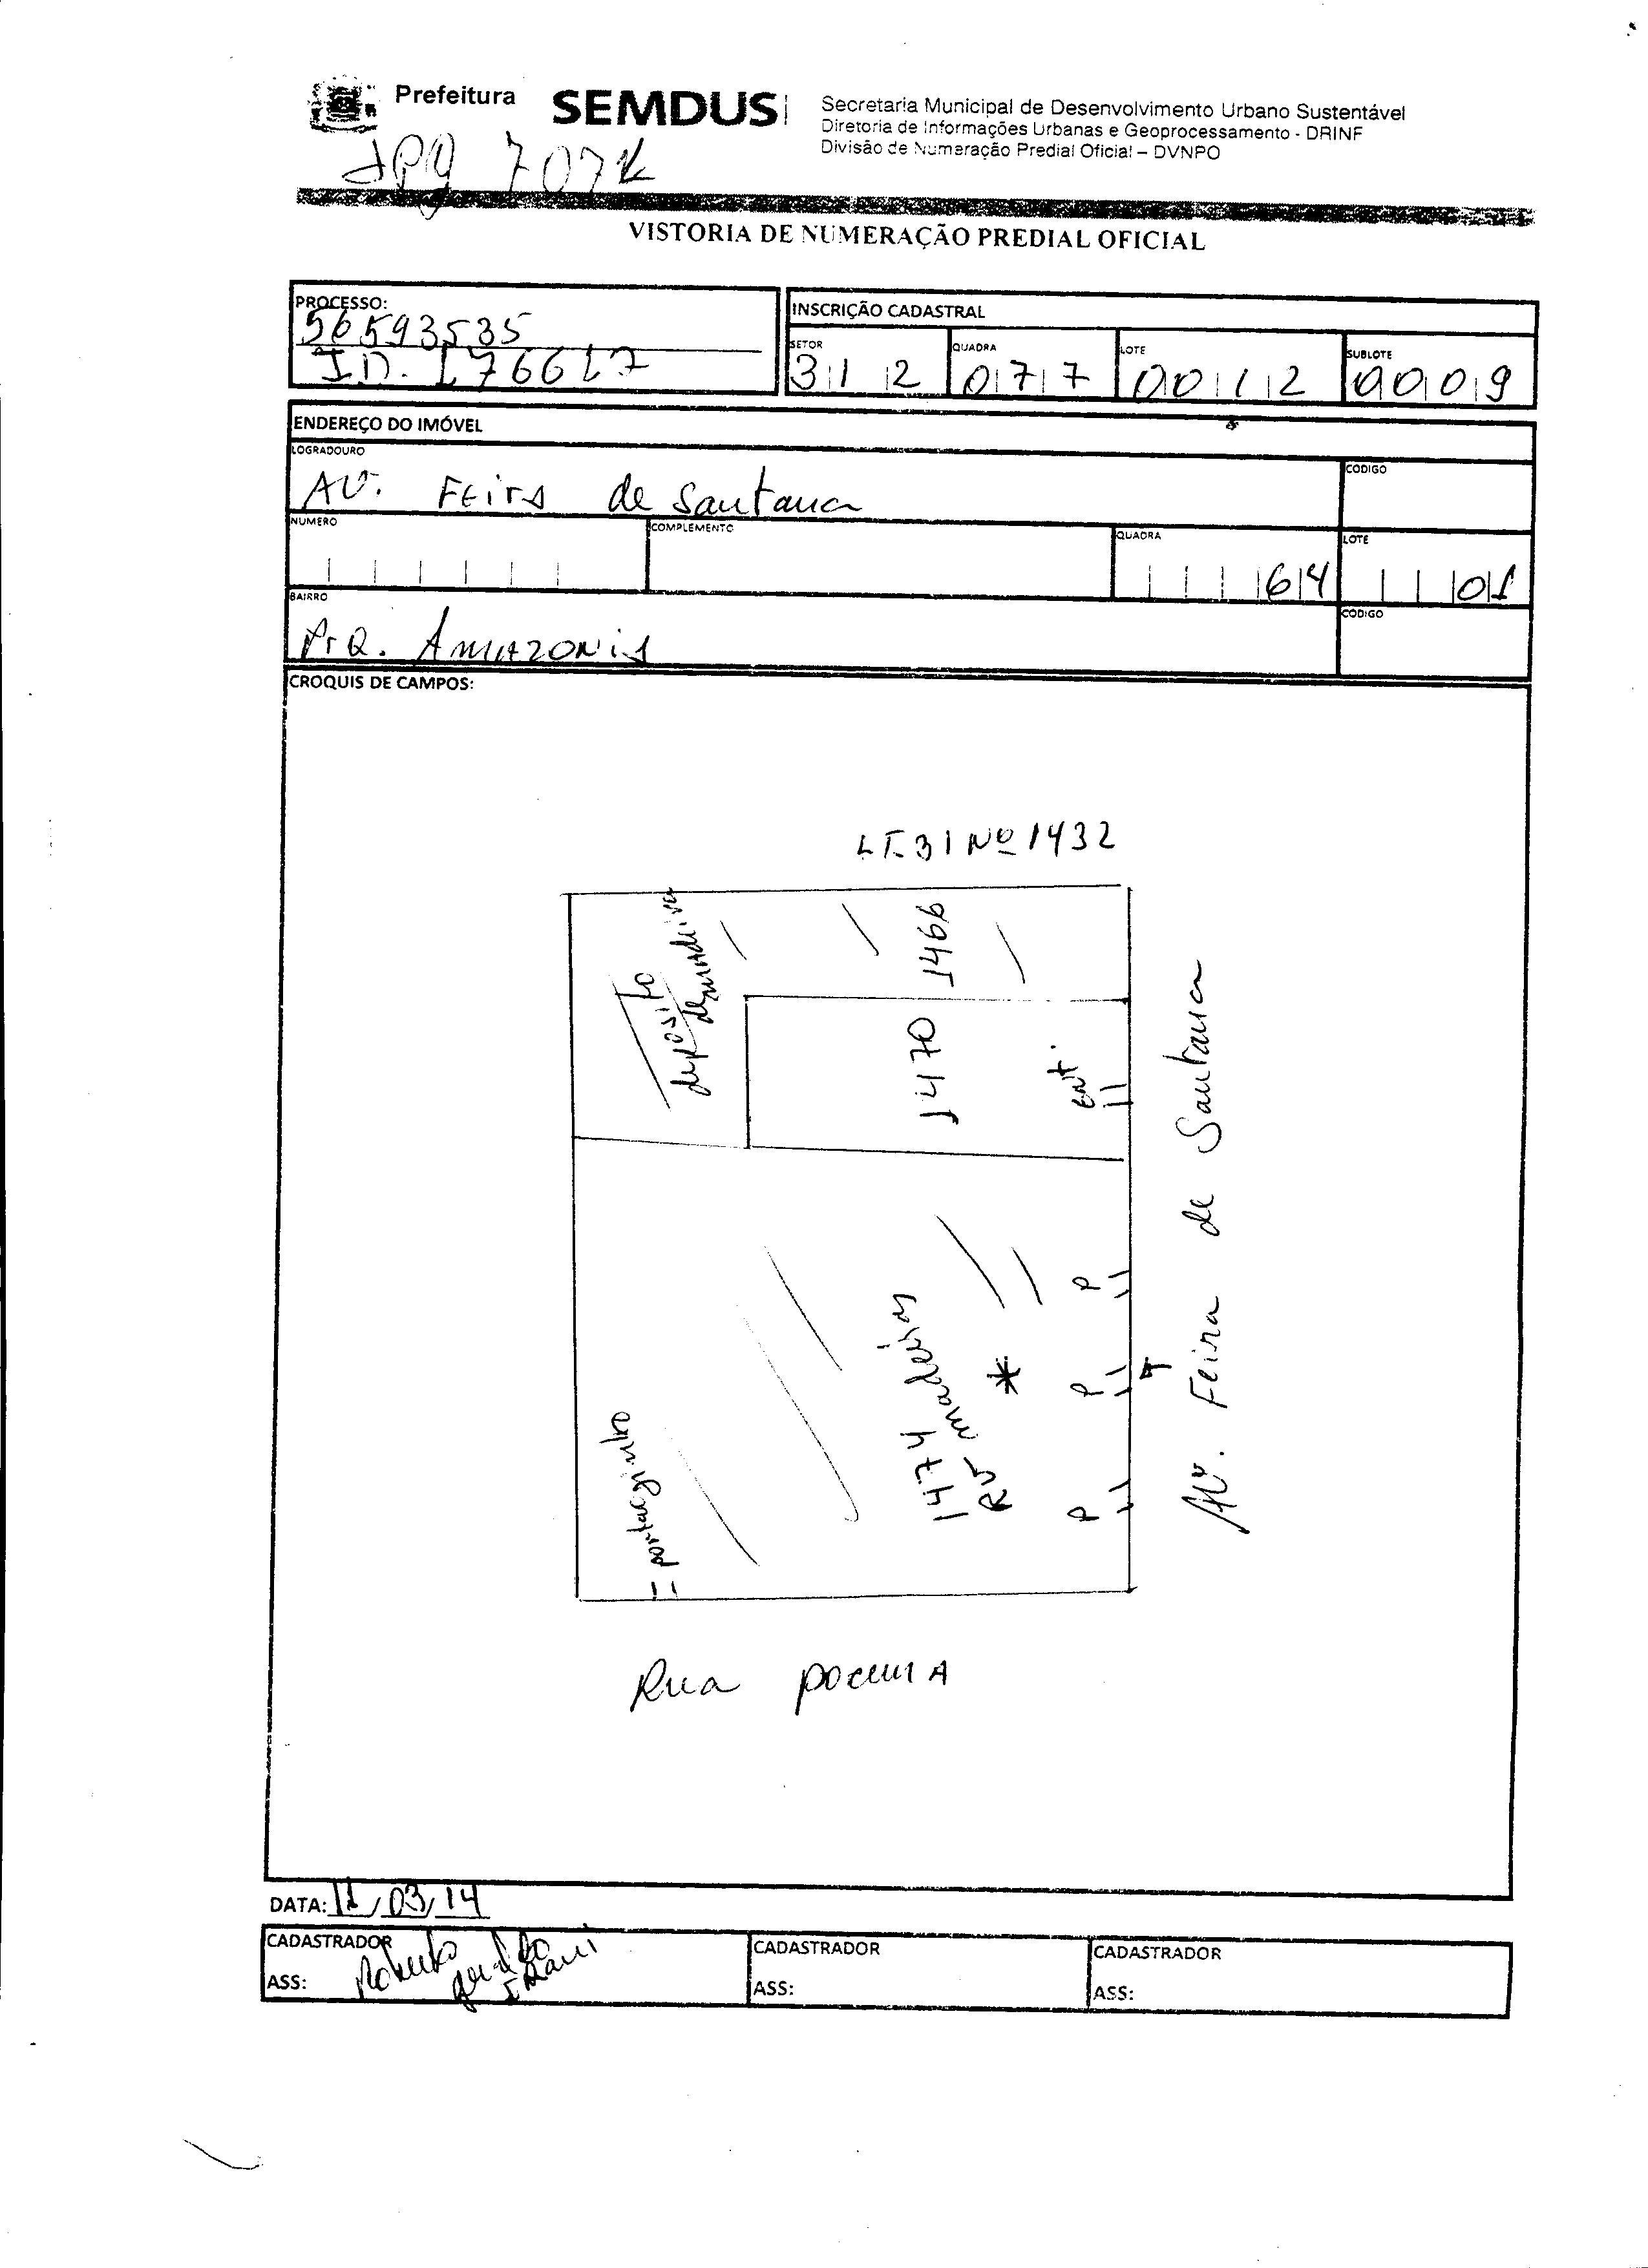 Prefeitura SEMDUS
Secretaria Municipal de Desenvolvimento Urbano Sustentável
Diretoria de Informações Urbanas e Geoprocessamento - DRINF
Divisão de Numeração Predial Oficial – DVNPO
JPg 7072
VISTORIA DE NUMERAÇÃO PREDIAL OFICIAL
PROCESSO:
56593535
I.D. 176617
INSCRIÇÃO CADASTRAL
SETOR QUADRA LOTE SUBLOTE
312 077 0012 0009
ENDEREÇO DO IMÓVEL
LOGRADOURO CODIGO
AV. FEirA de Santana
NUMERO COMPLEMENTO QUADRA LOTE
64 01
BAIRRO CODIGO
PrQ. AMAZONiA
CROQUIS DE CAMPOS:
LT.31 Nº 1432
deposito
de madeira
1466
1470
ent.
Av. Feira de Santana
1474
RS madeiras
P
P
P
portaozinho
Rua
DATA: 11/03/14
CADASTRADOR CADASTRADOR CADASTRADOR
Roberto
ASS: ASS: ASS: